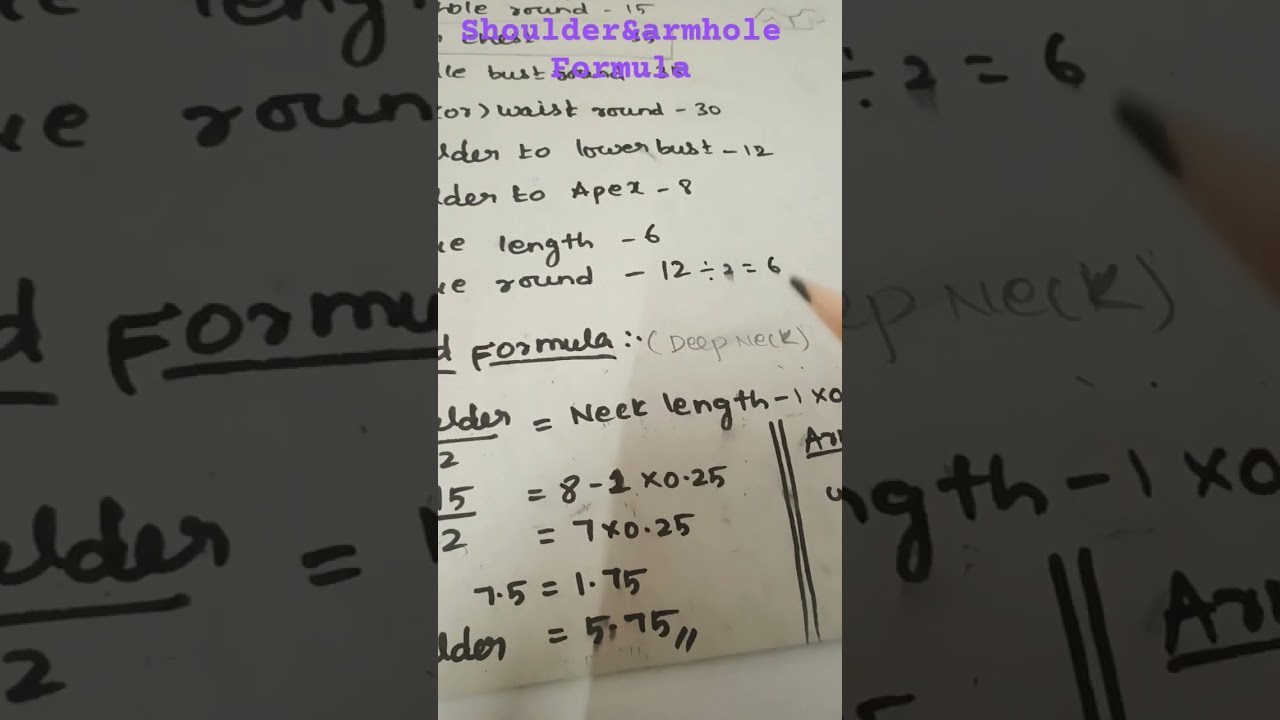 Shoulder&armhole
Formula
ole round - 15
chest
le bust round
(or) waist round - 30
lder to lowerbust - 12
lder to Apex - 8
ve length - 6
ve round - 12 ÷ 2 = 6
d Formula :- (Deep Neck)
ulder = Neck length - 1 × 0
2
15 = 8 - 1 × 0.25
2 = 7 × 0.25
7.5 = 1.75
lder = 5.75 //
Ar